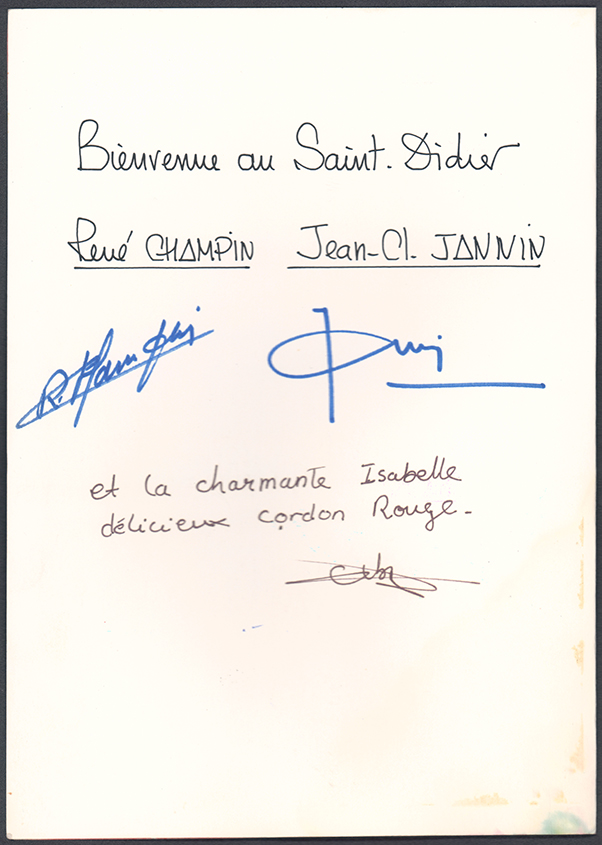 Bienvenue au Saint-Didier
René CHAMPIN Jean-Cl. JANNIN
R. Champin
et la charmante Isabelle
délicieux cordon Rouge-